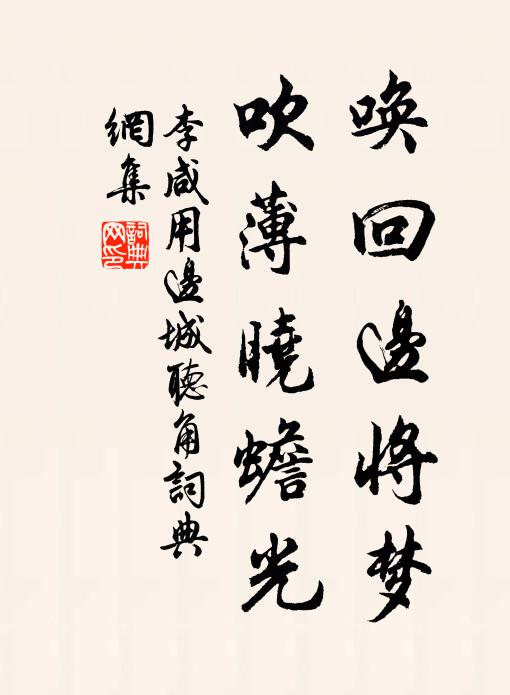 唤回邊将梦
吹薄曉蟾光
李咸用邊城聽角詞典
網集
詞典
网印